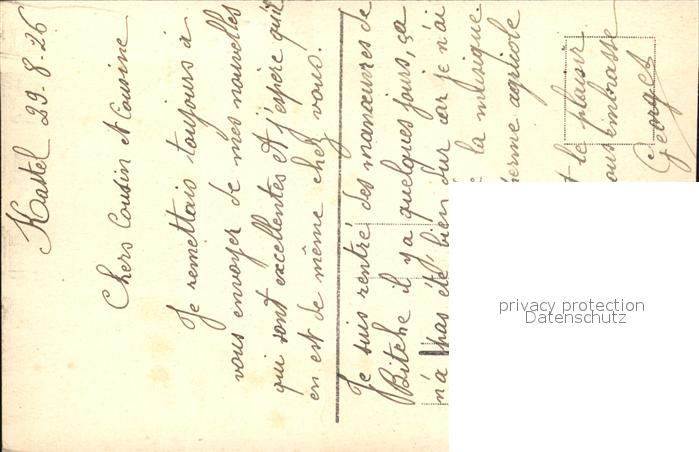 Kastel 29-8-26
Chers Cousin et Cousine
Je remettais toujours à
vous envoyer de mes nouvelles
qui sont excellentes et j'espère qu'il
en est de même chez vous.
Je suis rentré des manœuvres de
Bitche il y a quelques jours, ça
n'a pas été bien dur car je n'ai
la musique.
agricole
t le plaisir
ous embrasse
Georges
privacy protection
Datenschutz